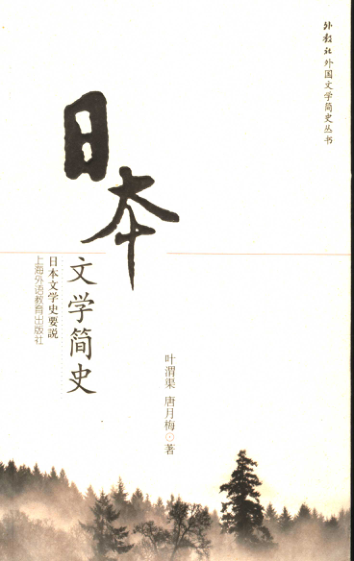 外教社外国文学简史丛书
日本
文学简史
日本文学史要説
上海外语教育出版社
叶渭渠 唐月梅◎著